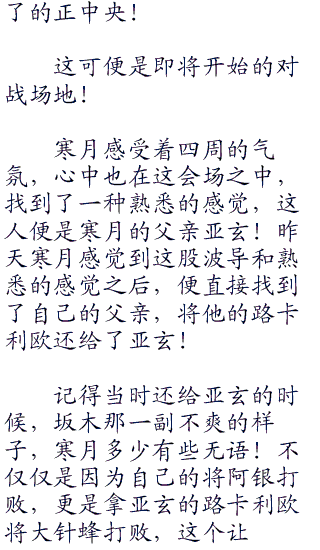 了的正中央！
这可便是即将开始的对
战场地！
寒月感受着四周的气
氛，心中也在这会场之中，
找到了一种熟悉的感觉，这
人便是寒月的父亲亚玄！昨
天寒月感觉到这股波导和熟
悉的感觉之后，便直接找到
了自己的父亲，将他的路卡
利欧还给了亚玄！
记得当时还给亚玄的时
候，坂木那一副不爽的样
子，寒月多少有些无语！不
仅仅是因为自己的将阿银打
败，更是拿亚玄的路卡利欧
将大针蜂打败，这个让